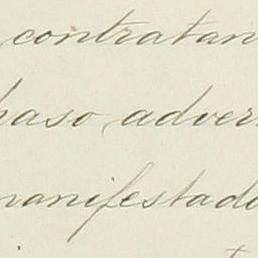 contratan
paso adver
manifestado